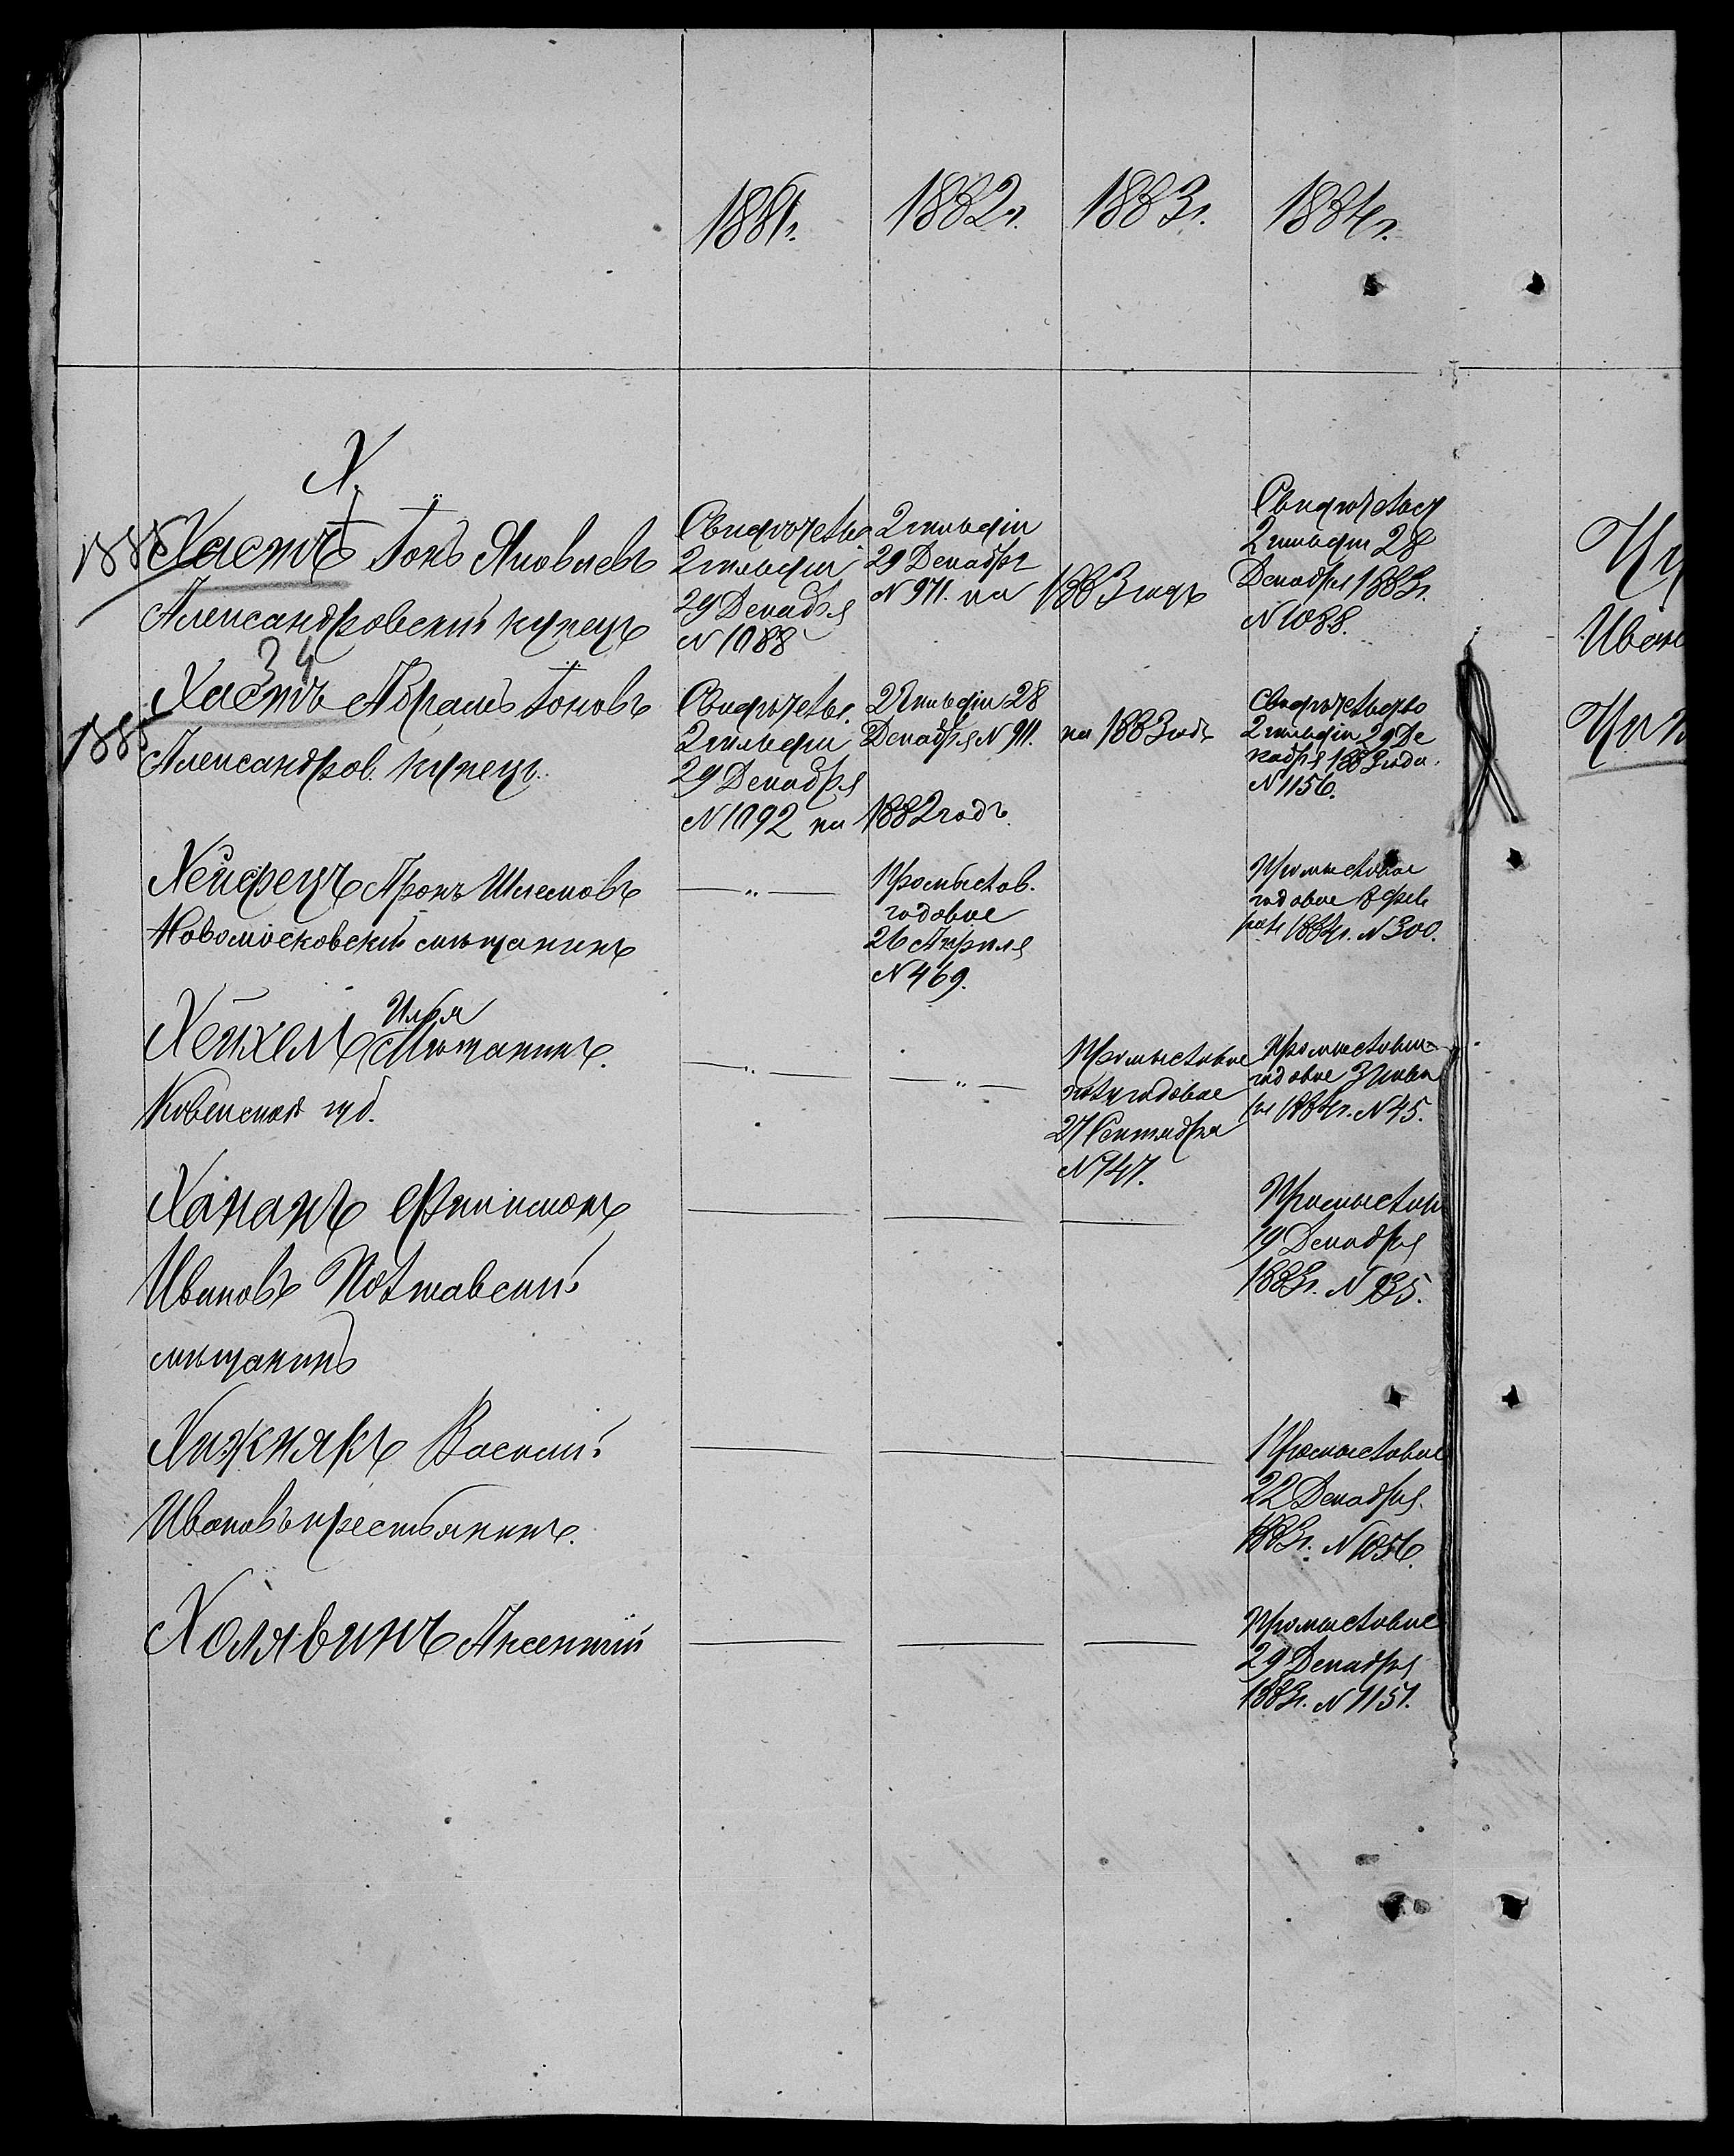 1881г. 1882г. 1883г. 1884г.
Х.
1885 Хастъ Іонъ Яковлевъ
Александровский купецъ
Свидѣтельс.
2 гильдіи
29 Декабря
N 1088
2 гильдіи
29 Декабря
N 971. на 1883 годъ
Свидѣтельст
2 гильдіи 28
Декабря 1883г.
N 1088.
34
1885 Хастъ Абрамъ Іоновъ
Александров. купецъ.
Свидѣтельс.
2 гильдіи
29 Декабря
N 1092 на 1882 годъ.
2 Гильдіи 28
Декабря N 911. на 1883 годъ
Свидѣтельство
2 гильдіи 29 Де
кабря 1883 года.
N 1156.
Хейфецъ Аронъ Шлемовъ
Новомосковский мѣщанинъ
— „ —
Промыслов.
годовое
26 Апрѣля
N 469.
Промысловое
годовое
1884г. N 300.
Илья
Хейхель Мѣщанинъ.
Ковенской губ.
— „ —
— „ —
Промысловое
полугодовое
27 Сентября
N 747.
Промыслов
годовое 3 Янва
ря 1884г. N 45.
Хананъ Филимонъ
Ивановъ Полтавский
мѣщанинъ
Промыслов
19 Декабря
1883г. N 935.
Хижнякъ Василий
Ивановъ крестьянинъ.
Промысловое
22 Декабря.
1883г. N 1056.
Холявинъ Аксентий
Промысловое
29 Декабря
1883г. N 1151.
Иван